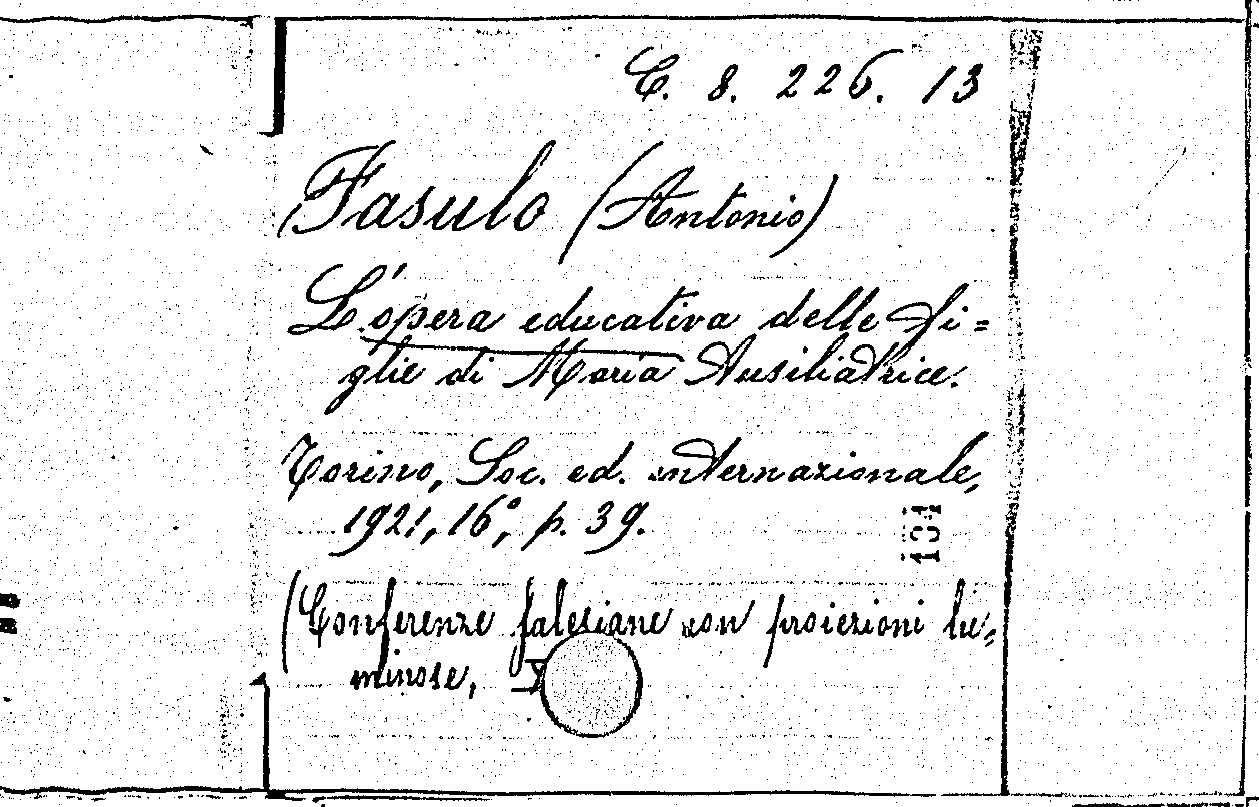 C. 8. 226. 13
Fasulo (Antonio)
L'opera educativa delle Fi=
glie di Maria Ausiliatrice.
Torino, Soc. ed. internazionale,
1921, 16°, p. 39.
131
(Conferenze salesiane con proiezioni lu=
minose,